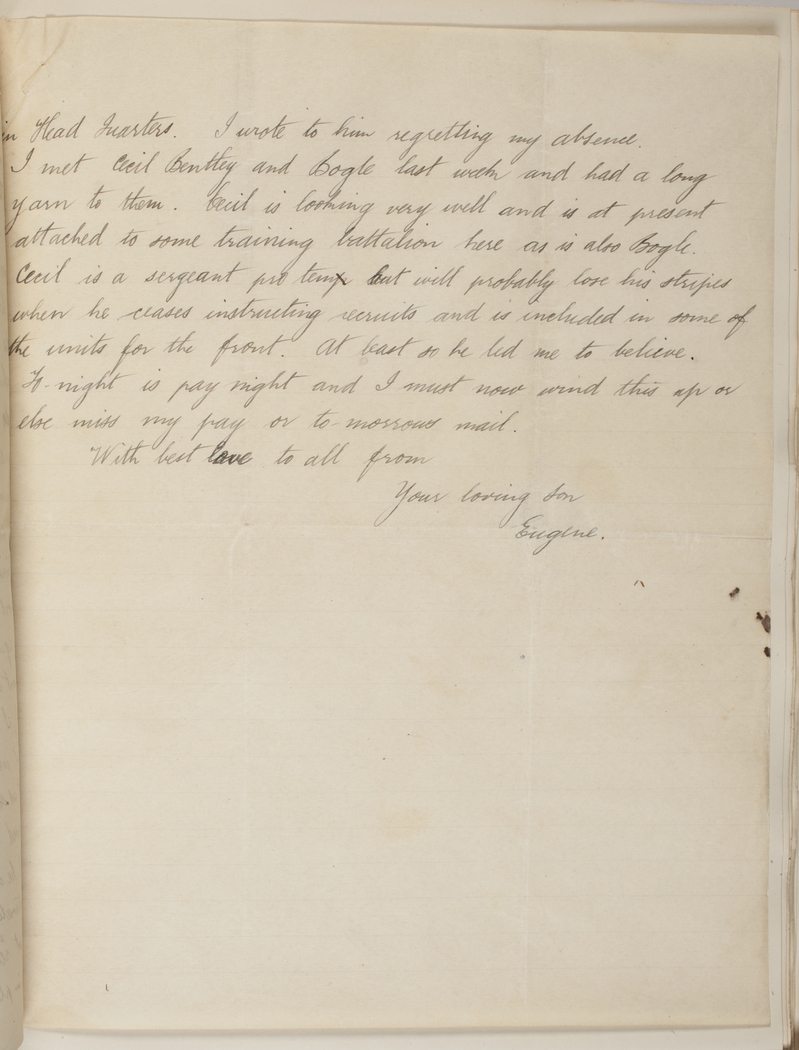 in Head Quarters. I wrote to him regretting my absence.
I met Cecil Bentley and Bogle last week and had a long
yarn to them. Cecil is looking very well and is at present
attached to some training battalion here as is also Bogle.
Cecil is a sergeant pro temp but will probably lose his stripes
when he ceases instructing recruits and is included in some of
the units for the front. At least so he led me to believe.
To-night is pay night and I must now wind this up or
else miss my pay or to-morrows mail.
With best love to all from
Your loving son
Eugene.